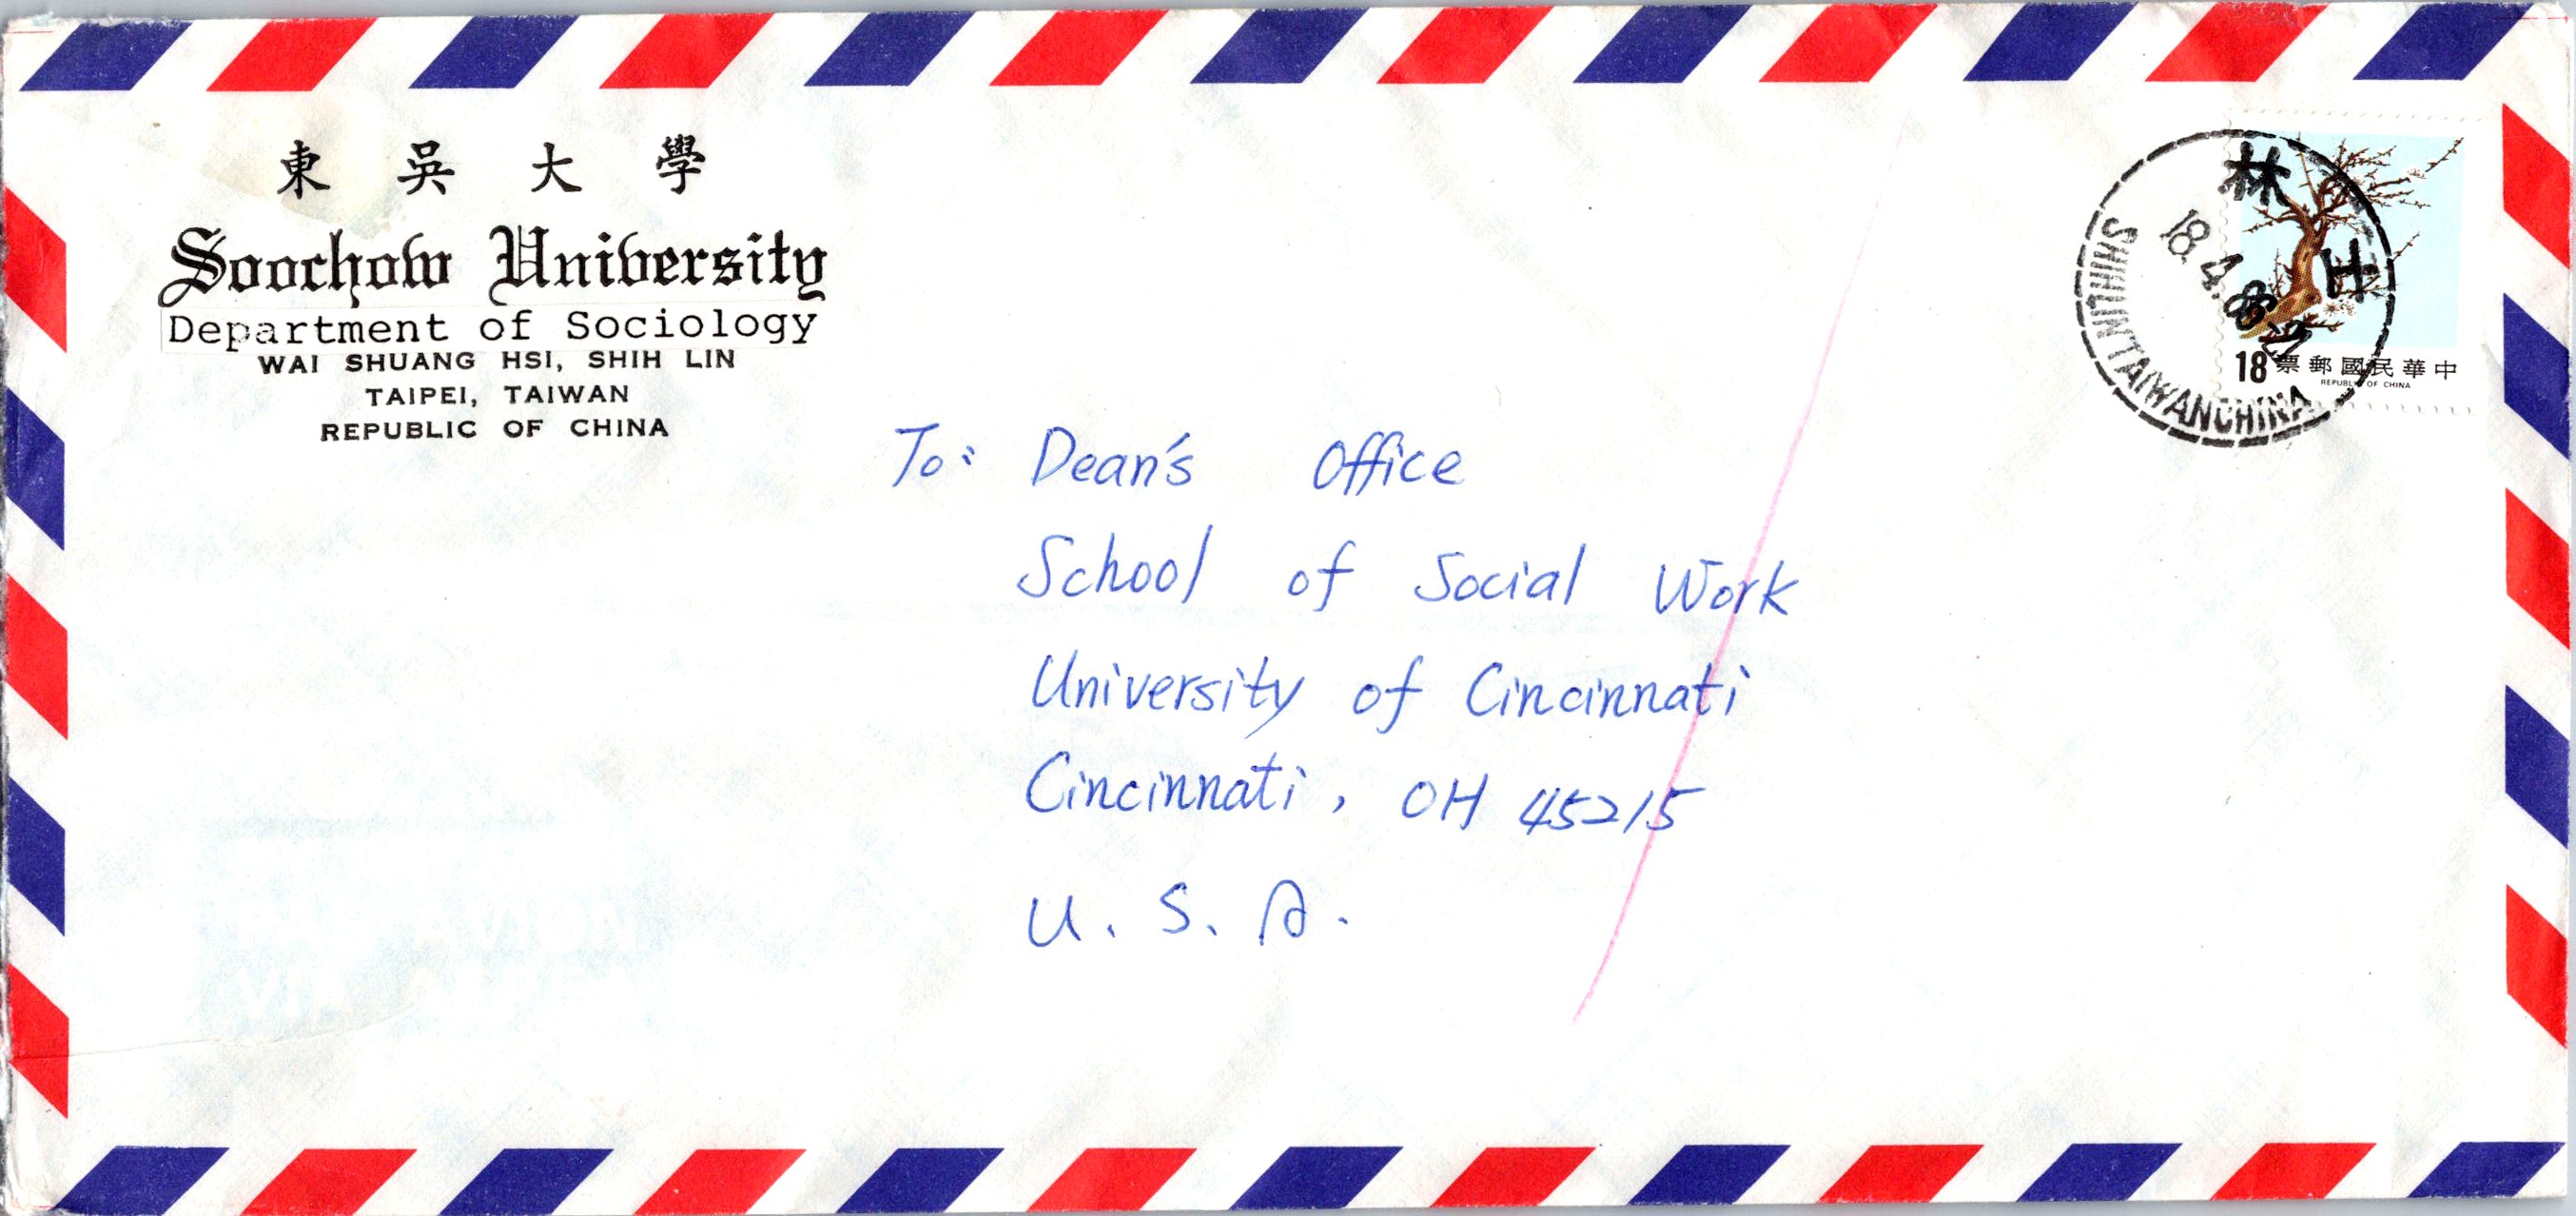 東吳大學
Soochow University
Department of Sociology
WAI SHUANG HSI, SHIH LIN
TAIPEI, TAIWAN
REPUBLIC OF CHINA
士林
18.4.
SHIHLIN TAIWAN CHINA
18 票郵國民華中
REPUBLIC OF CHINA
To: Dean's Office
School of Social Work
University of Cincinnati
Cincinnati, OH 45215
U.S.A.
PAR AVION
VIA